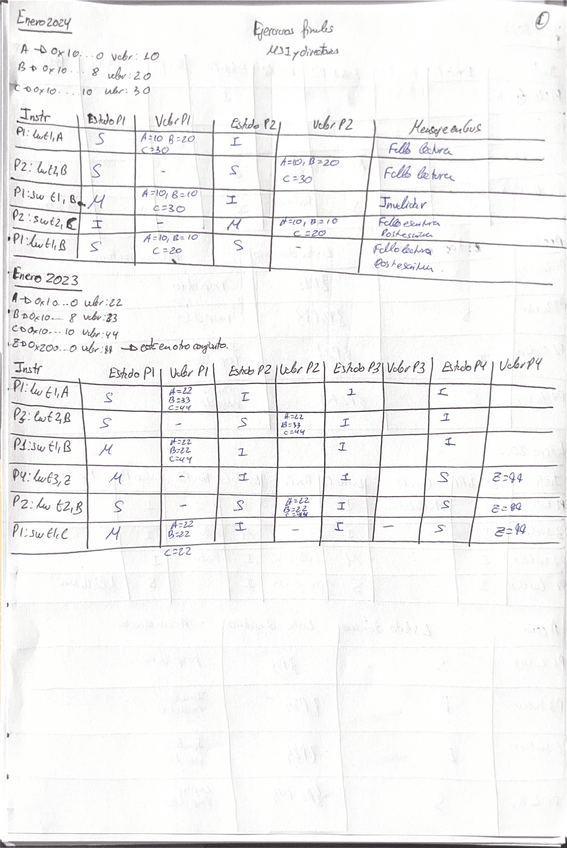 Enero 2024
1
Ejercicios finales
MSI y directivas
A → 0x10...0 valor: 10
B → 0x10... 8 valor: 20
C → 0x10... 10 valor: 30
Instr Estado P1 Valor P1 Estado P2 Valor P2 Mensaje en bus
P1: lw t1, A S A=10 B=20 C=30 I Fallo lectura
P2: lw t2, B S - S A=10, B=20 C=30 Fallo lectura
P1: sw t1, B M A=10, B=10 C=30 I Invalidar
P2: sw t2, C I - M A=10, B=10 C=20 Fallo escritura Postescritura
P1: lw t1, B S A=10, B=10 C=20 S - Fallo lectura Postescritura
Enero 2023
A → 0x10...0 valor: 22
B → 0x10... 8 valor: 33
C → 0x10... 10 valor: 44
Z → 0x200...0 valor: 99 → este en otro conjunto.
Instr Estado P1 Valor P1 Estado P2 Valor P2 Estado P3 Valor P3 Estado P4 Valor P4
P1: lw t1, A S A=22 B=33 C=44 I I I
P2: lw t2, B S - S A=22 B=33 C=44 I I
P1: sw t1, B M A=22 B=22 C=44 I I I
P4: lw t3, Z M - I I S Z=99
P2: lw t2, B S - S A=22 B=22 C=44 I S Z=99
P1: sw t1, C M A=22 B=22 C=22 I - I - S Z=99